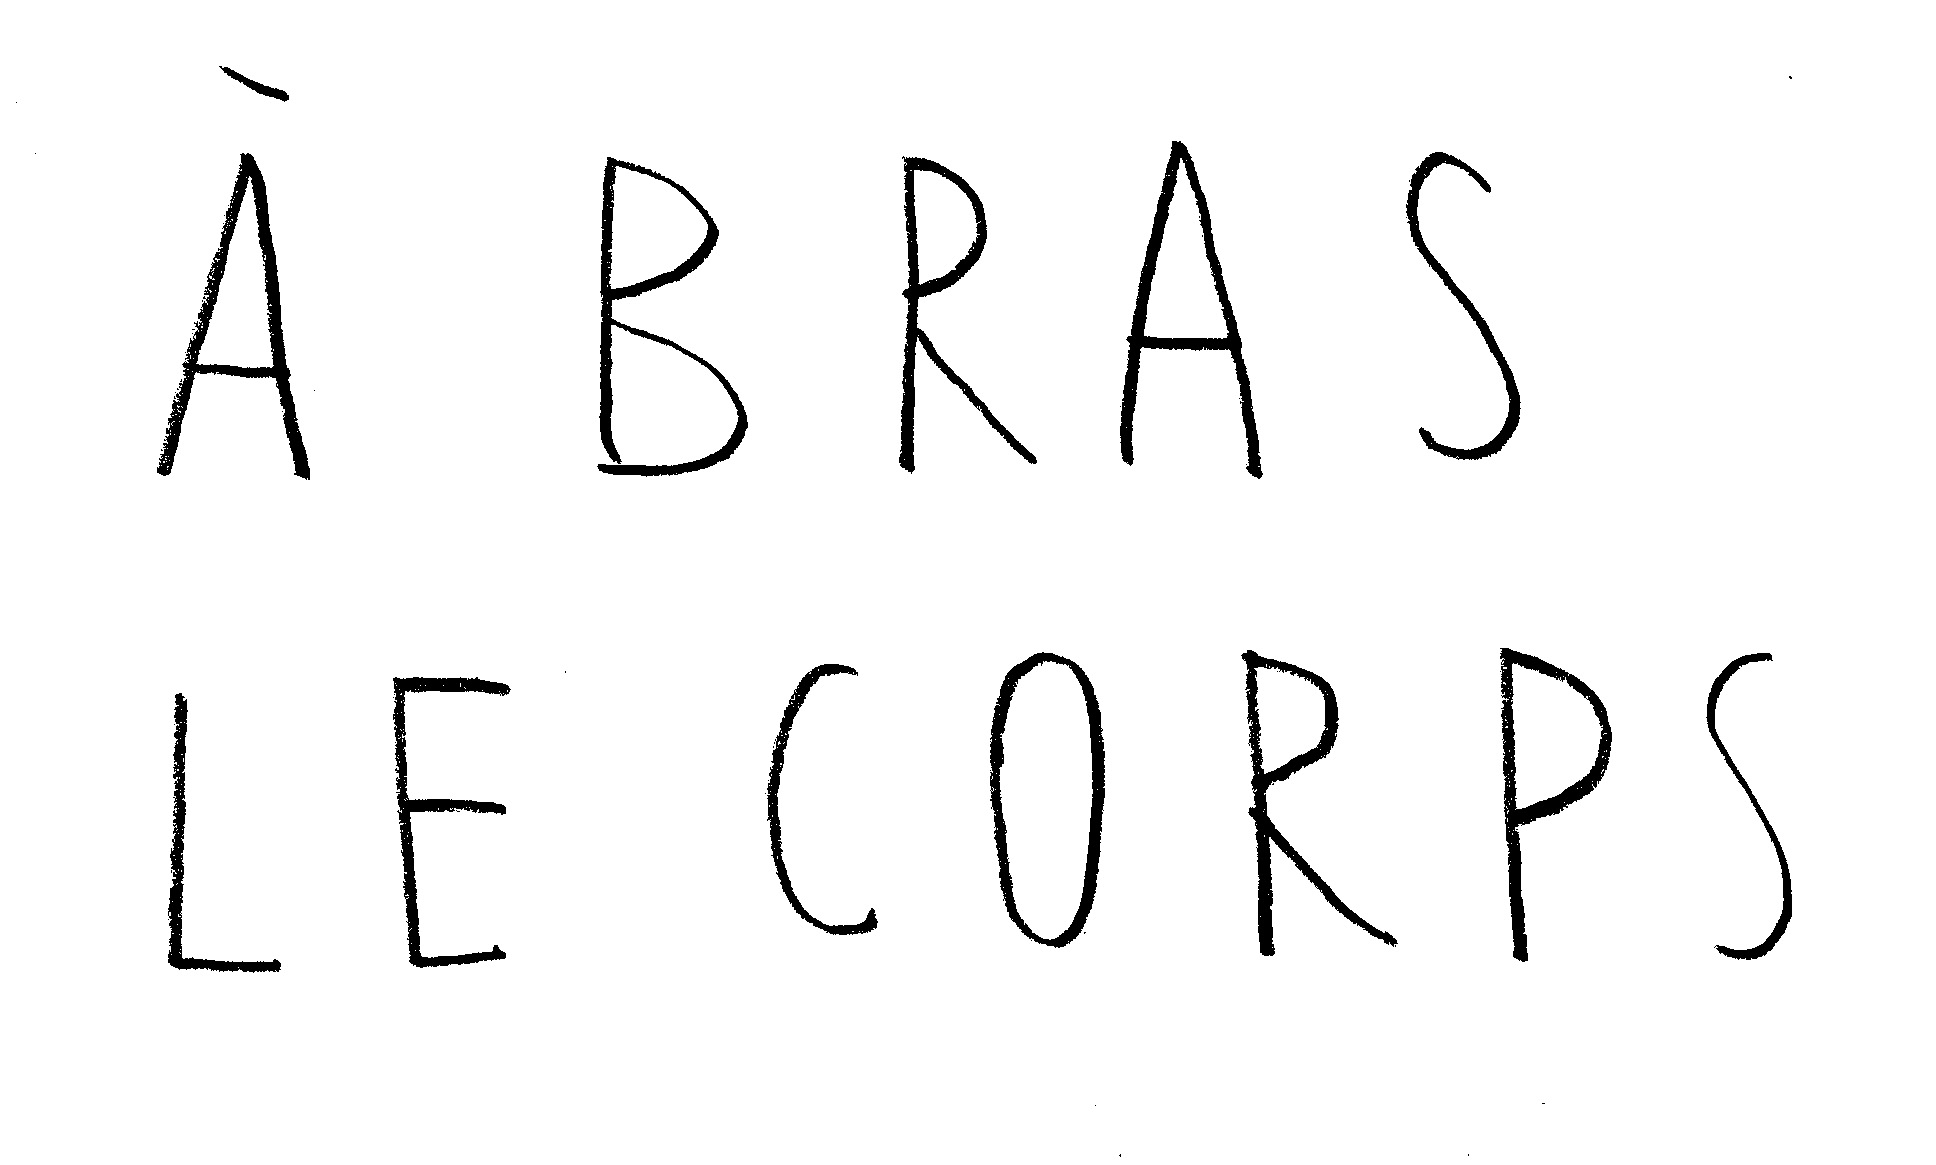 À BRAS
LE CORPS